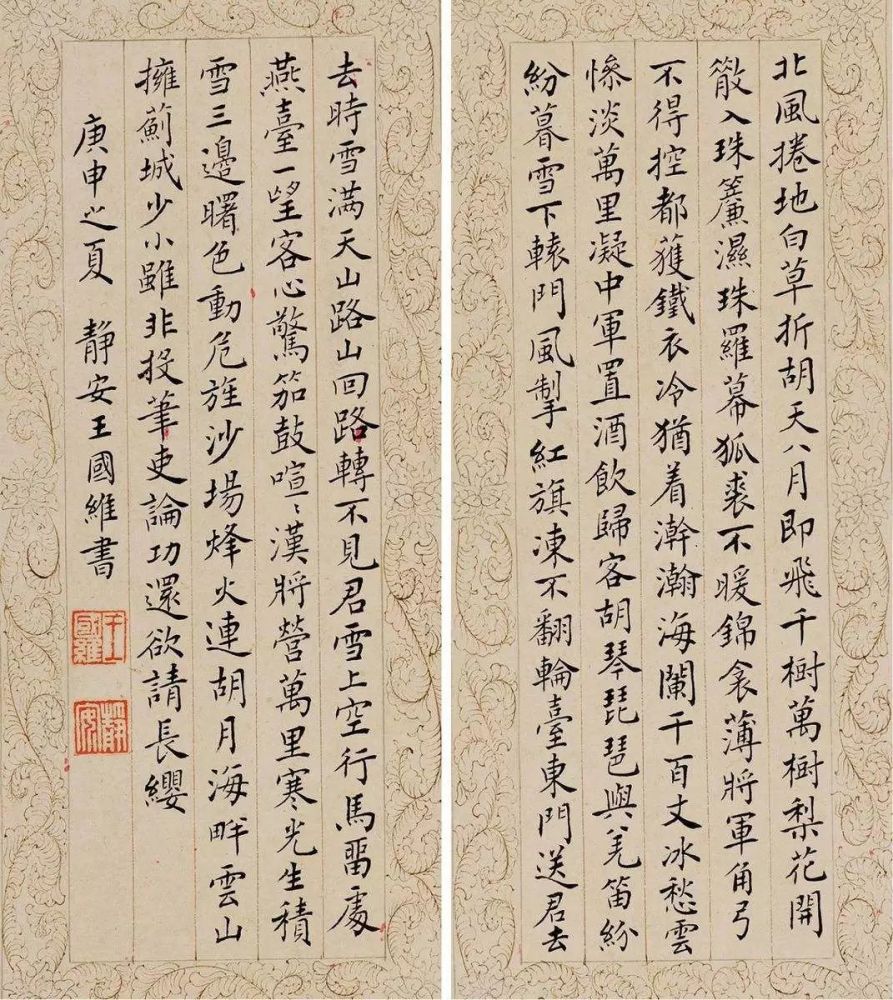 北風捲地白草折胡天八月即飛千樹萬樹梨花開
散入珠簾濕珠羅幕狐裘不暖錦衾薄將軍角弓
不得控都獲鐵衣冷猶着澣瀚海闌千百丈冰愁雲
慘淡萬里凝中軍置酒飲歸客胡琴琵琶與羌笛紛
紛暮雪下轅門風掣紅旗凍不翻輪臺東門送君去
去時雪滿天山路山回路轉不見君雪上空行馬畱處
燕臺一望客心驚笳鼓喧〻漢將營萬里寒光生積
雪三邊曙色動危旌沙場烽火連胡月海畔雲山
擁薊城少小雖非投筆吏論功還欲請長纓
庚申之夏 靜安王國維書
王國維
靜安